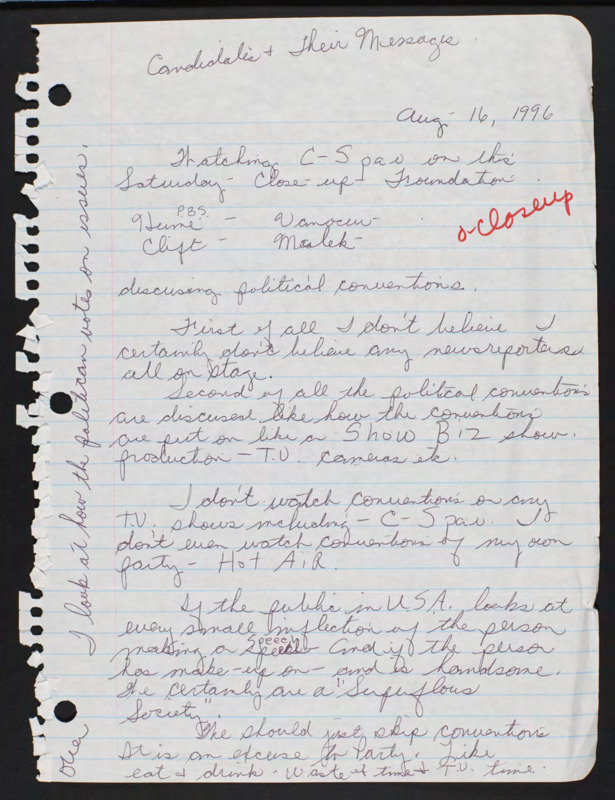 Candidates & Their Messages
Aug - 16, 1996
Watching C-Span on this
Saturday - Close-up - Foundation
o-closeup
PBS
Hume - Vanocur -
Clift - Mashek -
discusing political conventions.
First of all I don't believe I
certainly don't believe any newsreporters
all on stage.
Second of all the political conventions
are discused like how the conventions
are put on like a Show Biz show.
production - T.V. cameras etc.
I don't watch conventions on any
T.V. shows including - C-Span. I
don't even watch conventions of my own
party - Hot AiR.
If the public in USA. looks at
every small inflection of the person
making a Speech - And if the person
has make-up on - and is handsome.
We certainly are a "Superflous
Society".
We should just skip conventions
It is an excuse to Party. Like
eat & drink. Waste of time & T.V. time.
I look at how the politican votes on issues.
Over